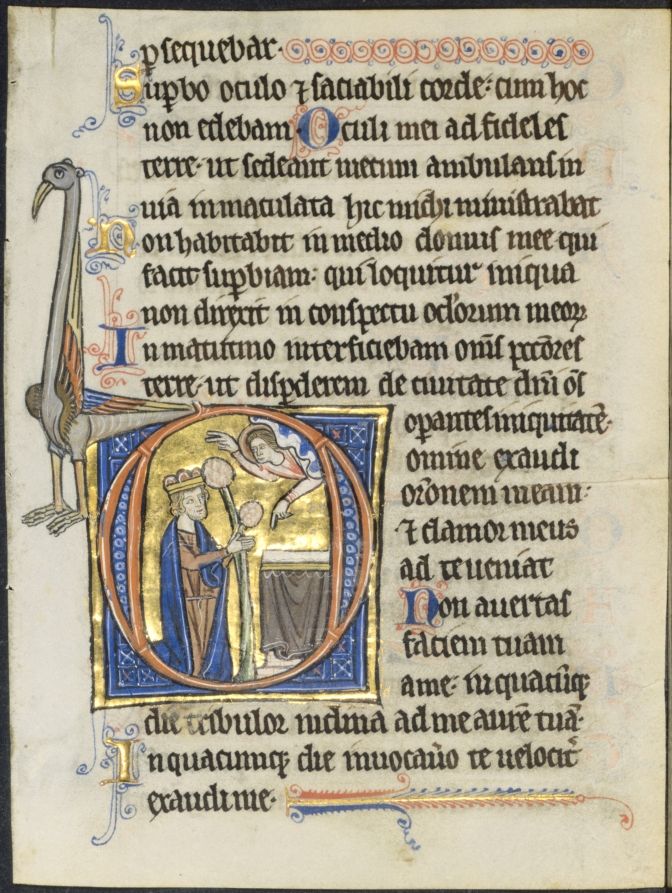 p̱sequebar·
Sup̱bo oculo ⁊ saciabili corde: cum hoc
non edebam· Oculi mei ad fideles
terre· ut sedeant mecum ambulans in
uia inmaculata hic michi ministrabat
Non habitabit in medio domus mee qui
facit sup̱biam: qui loquitur iniqua
non direxit in conspectu oc̄lorum meoꝝ
In matutino interficiebam om̄s pc̄cores
terre· ut disp̱derem de ciuitate dn̄i oc̄s
op̱antes iniquitatē·
omine exaudi
or̄onem meam·
⁊ clamor meus
ad te ueniat
Non auertas
faciem tuam
a me· in quacūqꝫ
die tribulor inclina ad me aurē tuā·
In quacumqꝫ die inuocau̅o te uelocit᷑
exaudi me·